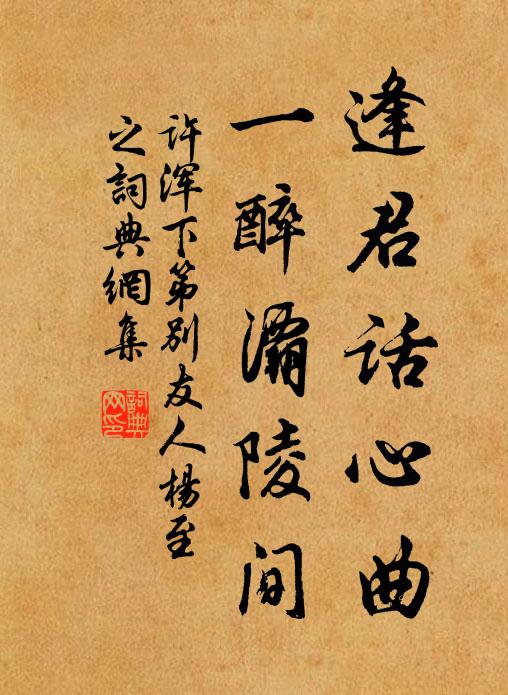 逢君话心曲
一醉灞陵间
许浑下第别友人杨至
之词典网集
詞典网印